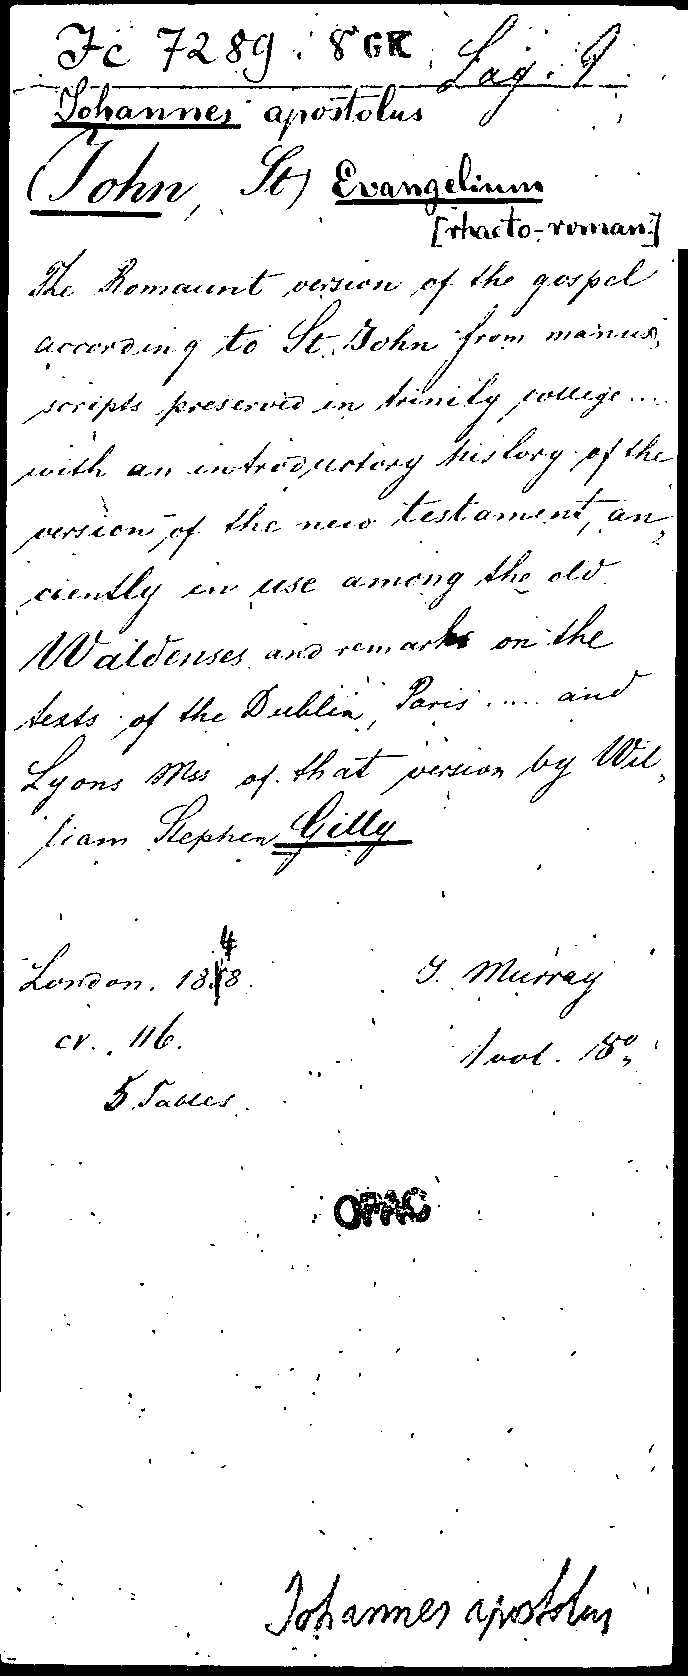 Fc 7289 : 8 GK Lag. 9
Johannes apostolus
(John, St) Evangelium
[rhaeto-roman.]
The Romaunt version of the gospel
according to St. John from manus,
scripts preserved in trinity college ....
with an introductory history of the
version of the new testament, an,
ciently in use among the old
Waldenses and remarks on the
texts of the Dublin, Paris ..... and
Lyons Mss of that version by Wil,
liam Stephen Gilly
4
London. 1848 J. Murray
cr. 116. 1 vol. 8º,
5 Tables.
OPAC
Johannes apostolus